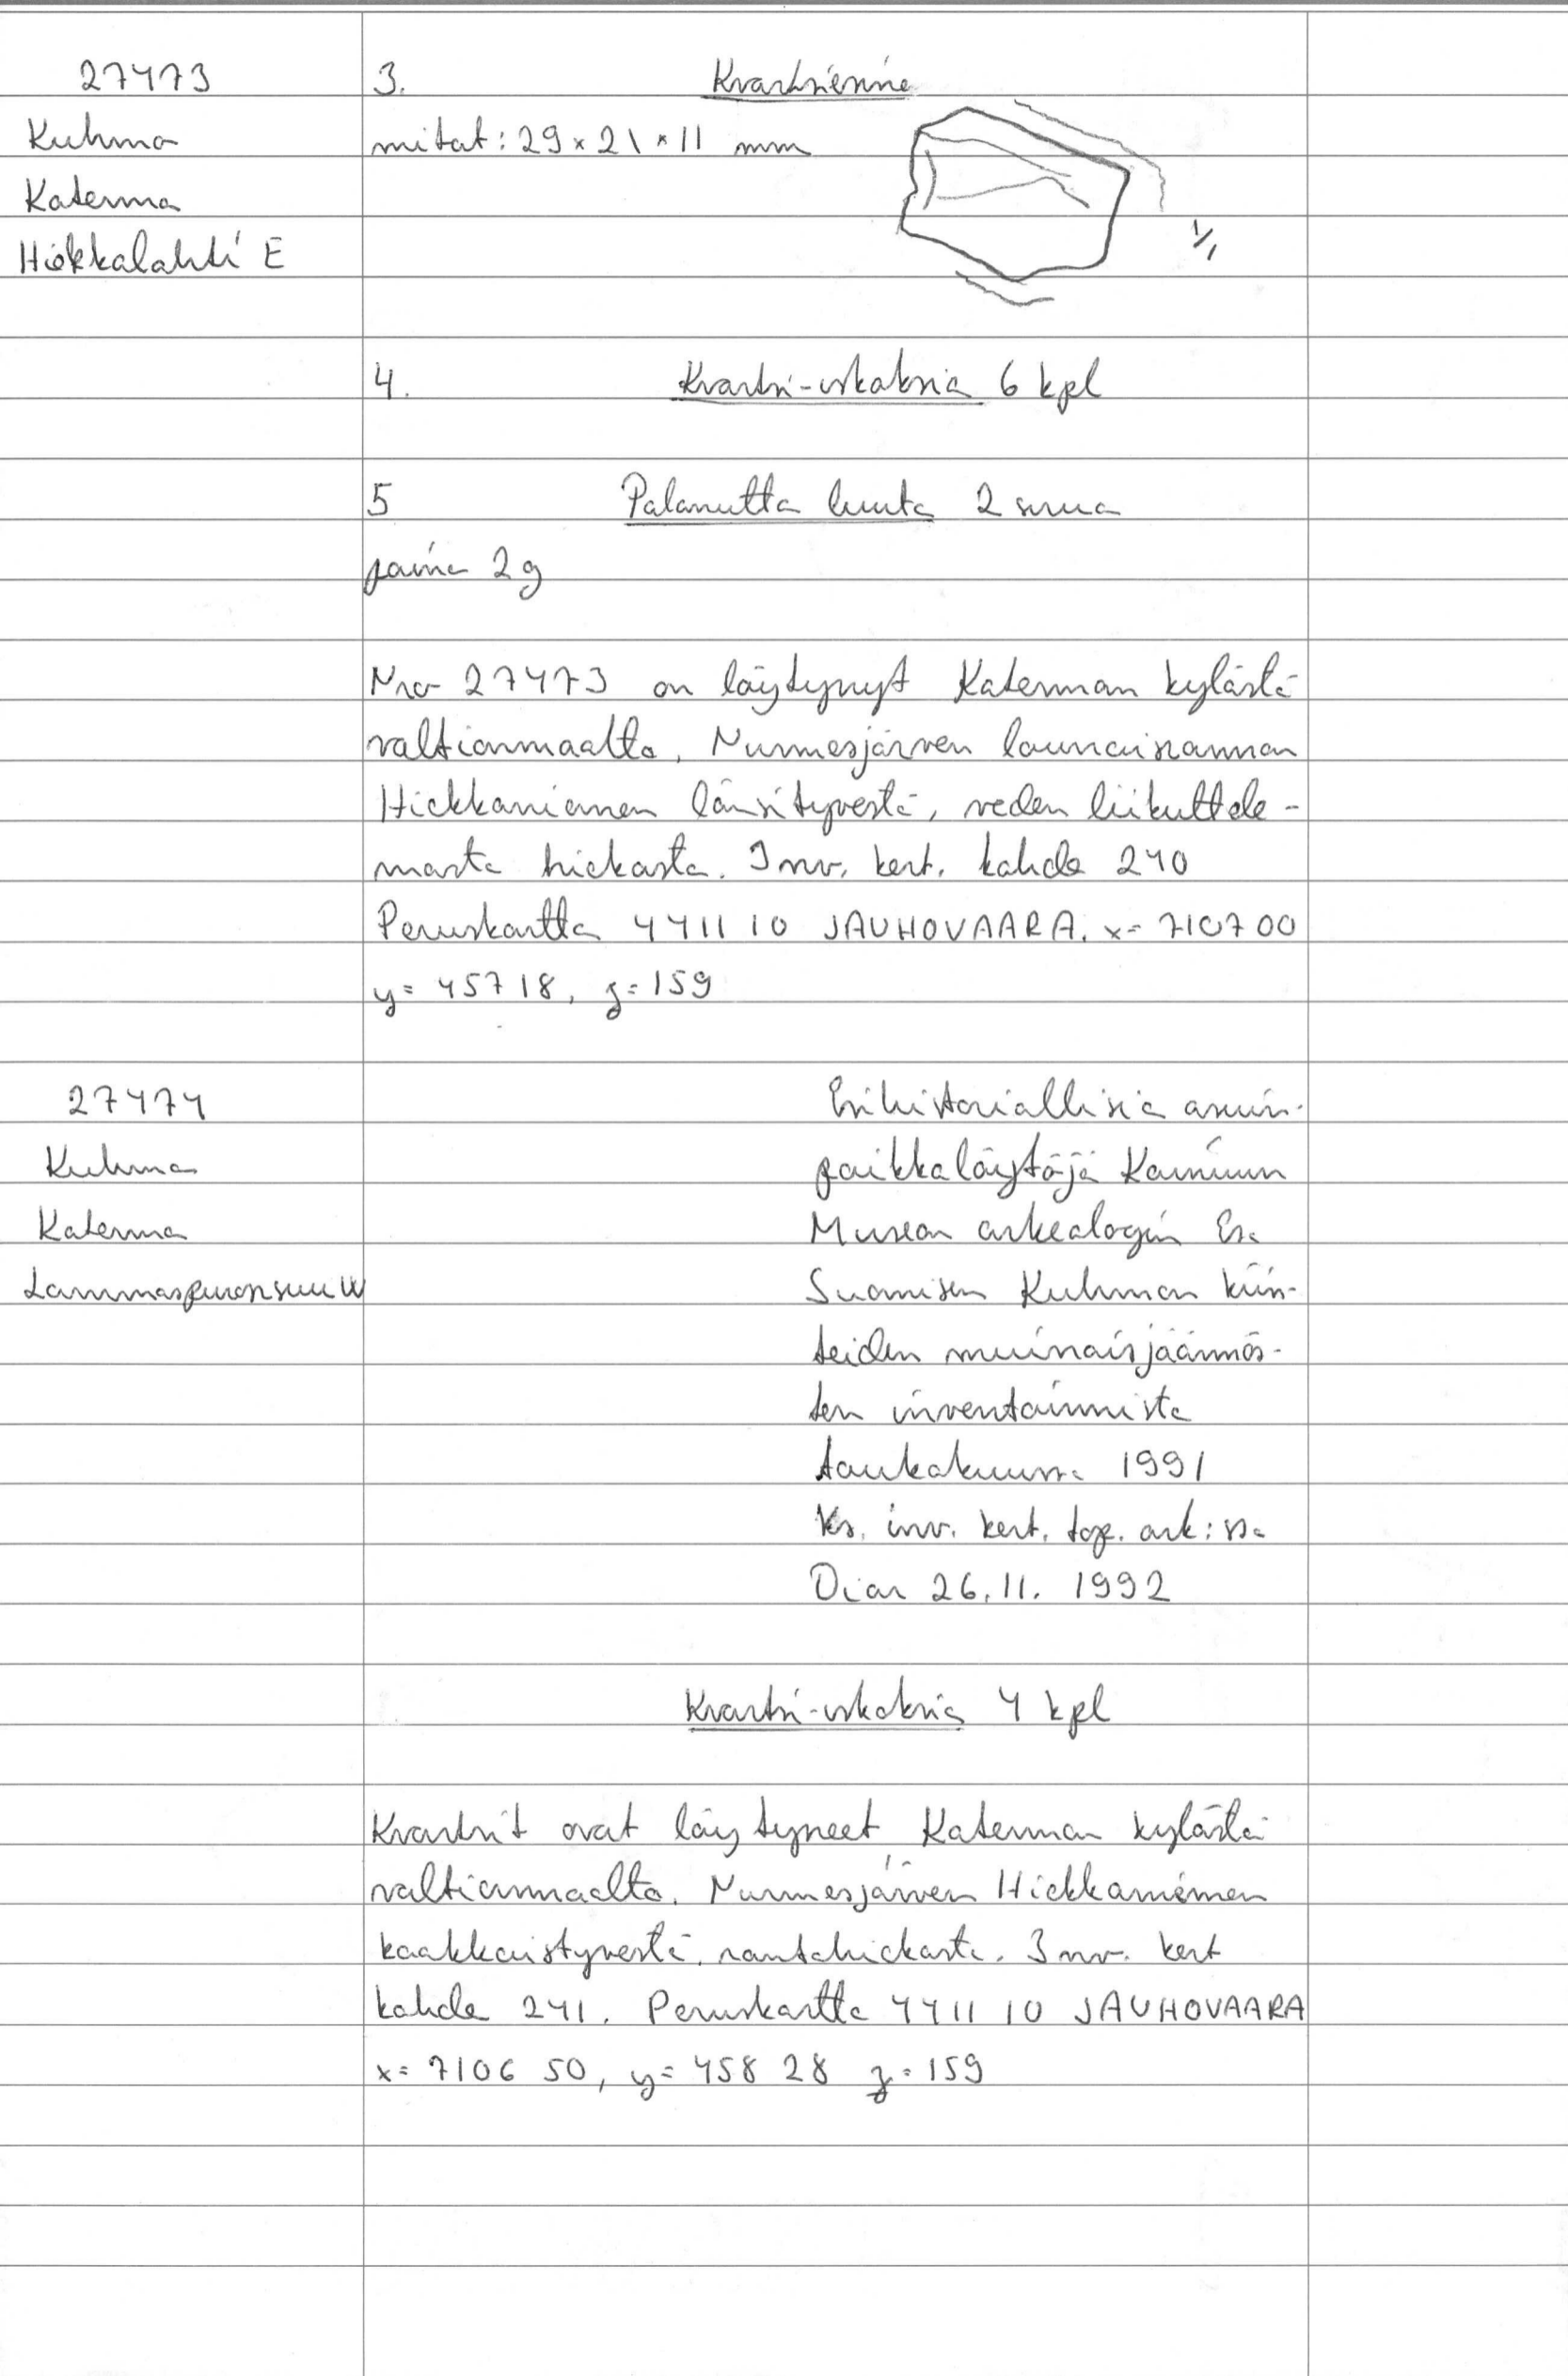 27473
Kuhmo
Katerma
Hiekkalahti E
3. Kvartsiesine
mitat: 29 x 21 x 11 mm
1/1
4. Kvartsi-iskoksia 6 kpl
5 Palanutta luuta 2 sirua
paino 2g
Nro 27473 on löytynyt Katerman kylästä
valtionmaalta, Nurmesjärven lounaisrannan
Hiekkaniemen länsityvestä, veden liikuttele-
masta hiekasta. Inv. kert. kohde 240
Peruskartta 4411 10 JAUHOVAARA. x= 7107 00
y= 457 18, z= 159
27474
Kuhmo
Katerma
Lammaspuronsuu W
Esihistoriallisia asuin-
paikkalöytöjä Kainuun
Museon arkeologin Esa
Suomisen Kuhmon kiin-
teiden muinaisjäännös-
ten inventoinnista
toukokuussa 1991
Ks. inv. kert. top. ark:ssa
Diar 26.11. 1992
Kvartsi-iskoksia 4 kpl
Kvartsit ovat löytyneet Katerman kylästä
valtionmaalta, Nurmesjärven Hiekkaniemen
kaakkoistyvestä, rantahiekasta. Inv. kert
kohde 241. Peruskartta 4411 10 JAUHOVAARA
x= 7106 50, y= 458 28 z= 159